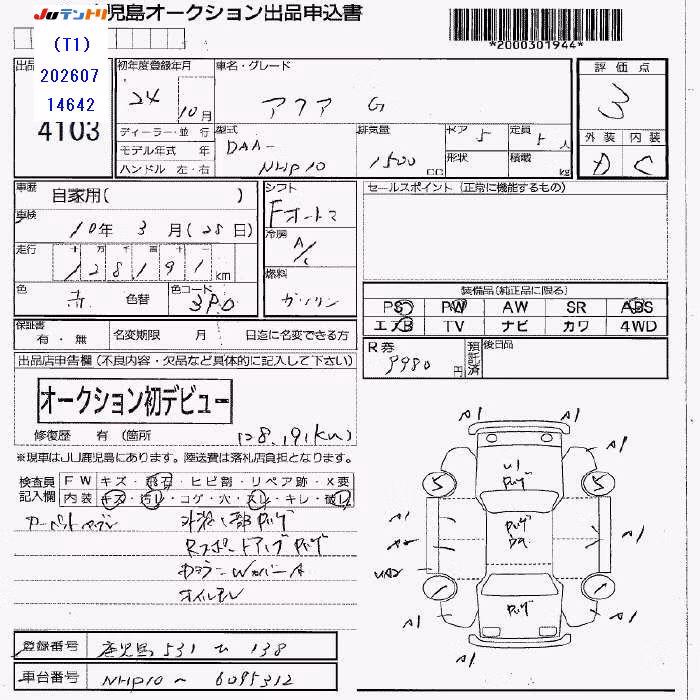 JUテントリ
児島オークション出品申込書
(T1)
202607
14642
4103
*2000301944*
出品
初年度登録年月
24
10月
車名・グレード
アクア G
評価点
3
外装 内装
D C
ディーラー・並行
モデル年式 年
ハンドル 左・右
型式
DAA-
NHP10
排気量
1500 cc
ドア 5
形状
定員 5人
積載 kg
車歴
自家用( )
車検
10年 3月(28日)
走行
十 万 千 百 十 一
128191 km
色
赤
色替
色コード
3P0
シフト
Fオートマ
冷房
A/C
燃料
ガソリン
セールスポイント (正常に機能するもの)
装備品(純正品に限る)
PS PW AW SR ABS
エアB TV ナビ カワ 4WD
保証書
有・無
名変期限 月 日迄に名変できる方
R券
9980
円
預託済
後日品
出品店申告欄(不良内容・欠品など具体的に記入して下さい)
オークション初デビュー
修復歴 有(箇所
128,191(km)
※現車はJU鹿児島にあります。陸送費は落札店負担となります。
検査員
記入欄
FW キズ・飛石・ヒビ割・リペア跡・X要
内装 キズ・汚レ・コゲ・穴・スレ・キレ・破レ
外装一部ハゲ
オイルモレ
A1 A1
A1 A1
5 5
U1
ハゲ
A1
A2
UA2
A1
A1
ハゲ
A1 A1
登録番号
鹿児島 531 て 138
車台番号
NHP10 〜 6095312